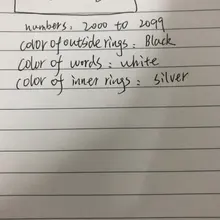 numbers: 2000 to 2099
color of outside rings: Black
color of words: white
color of inner rings: silver